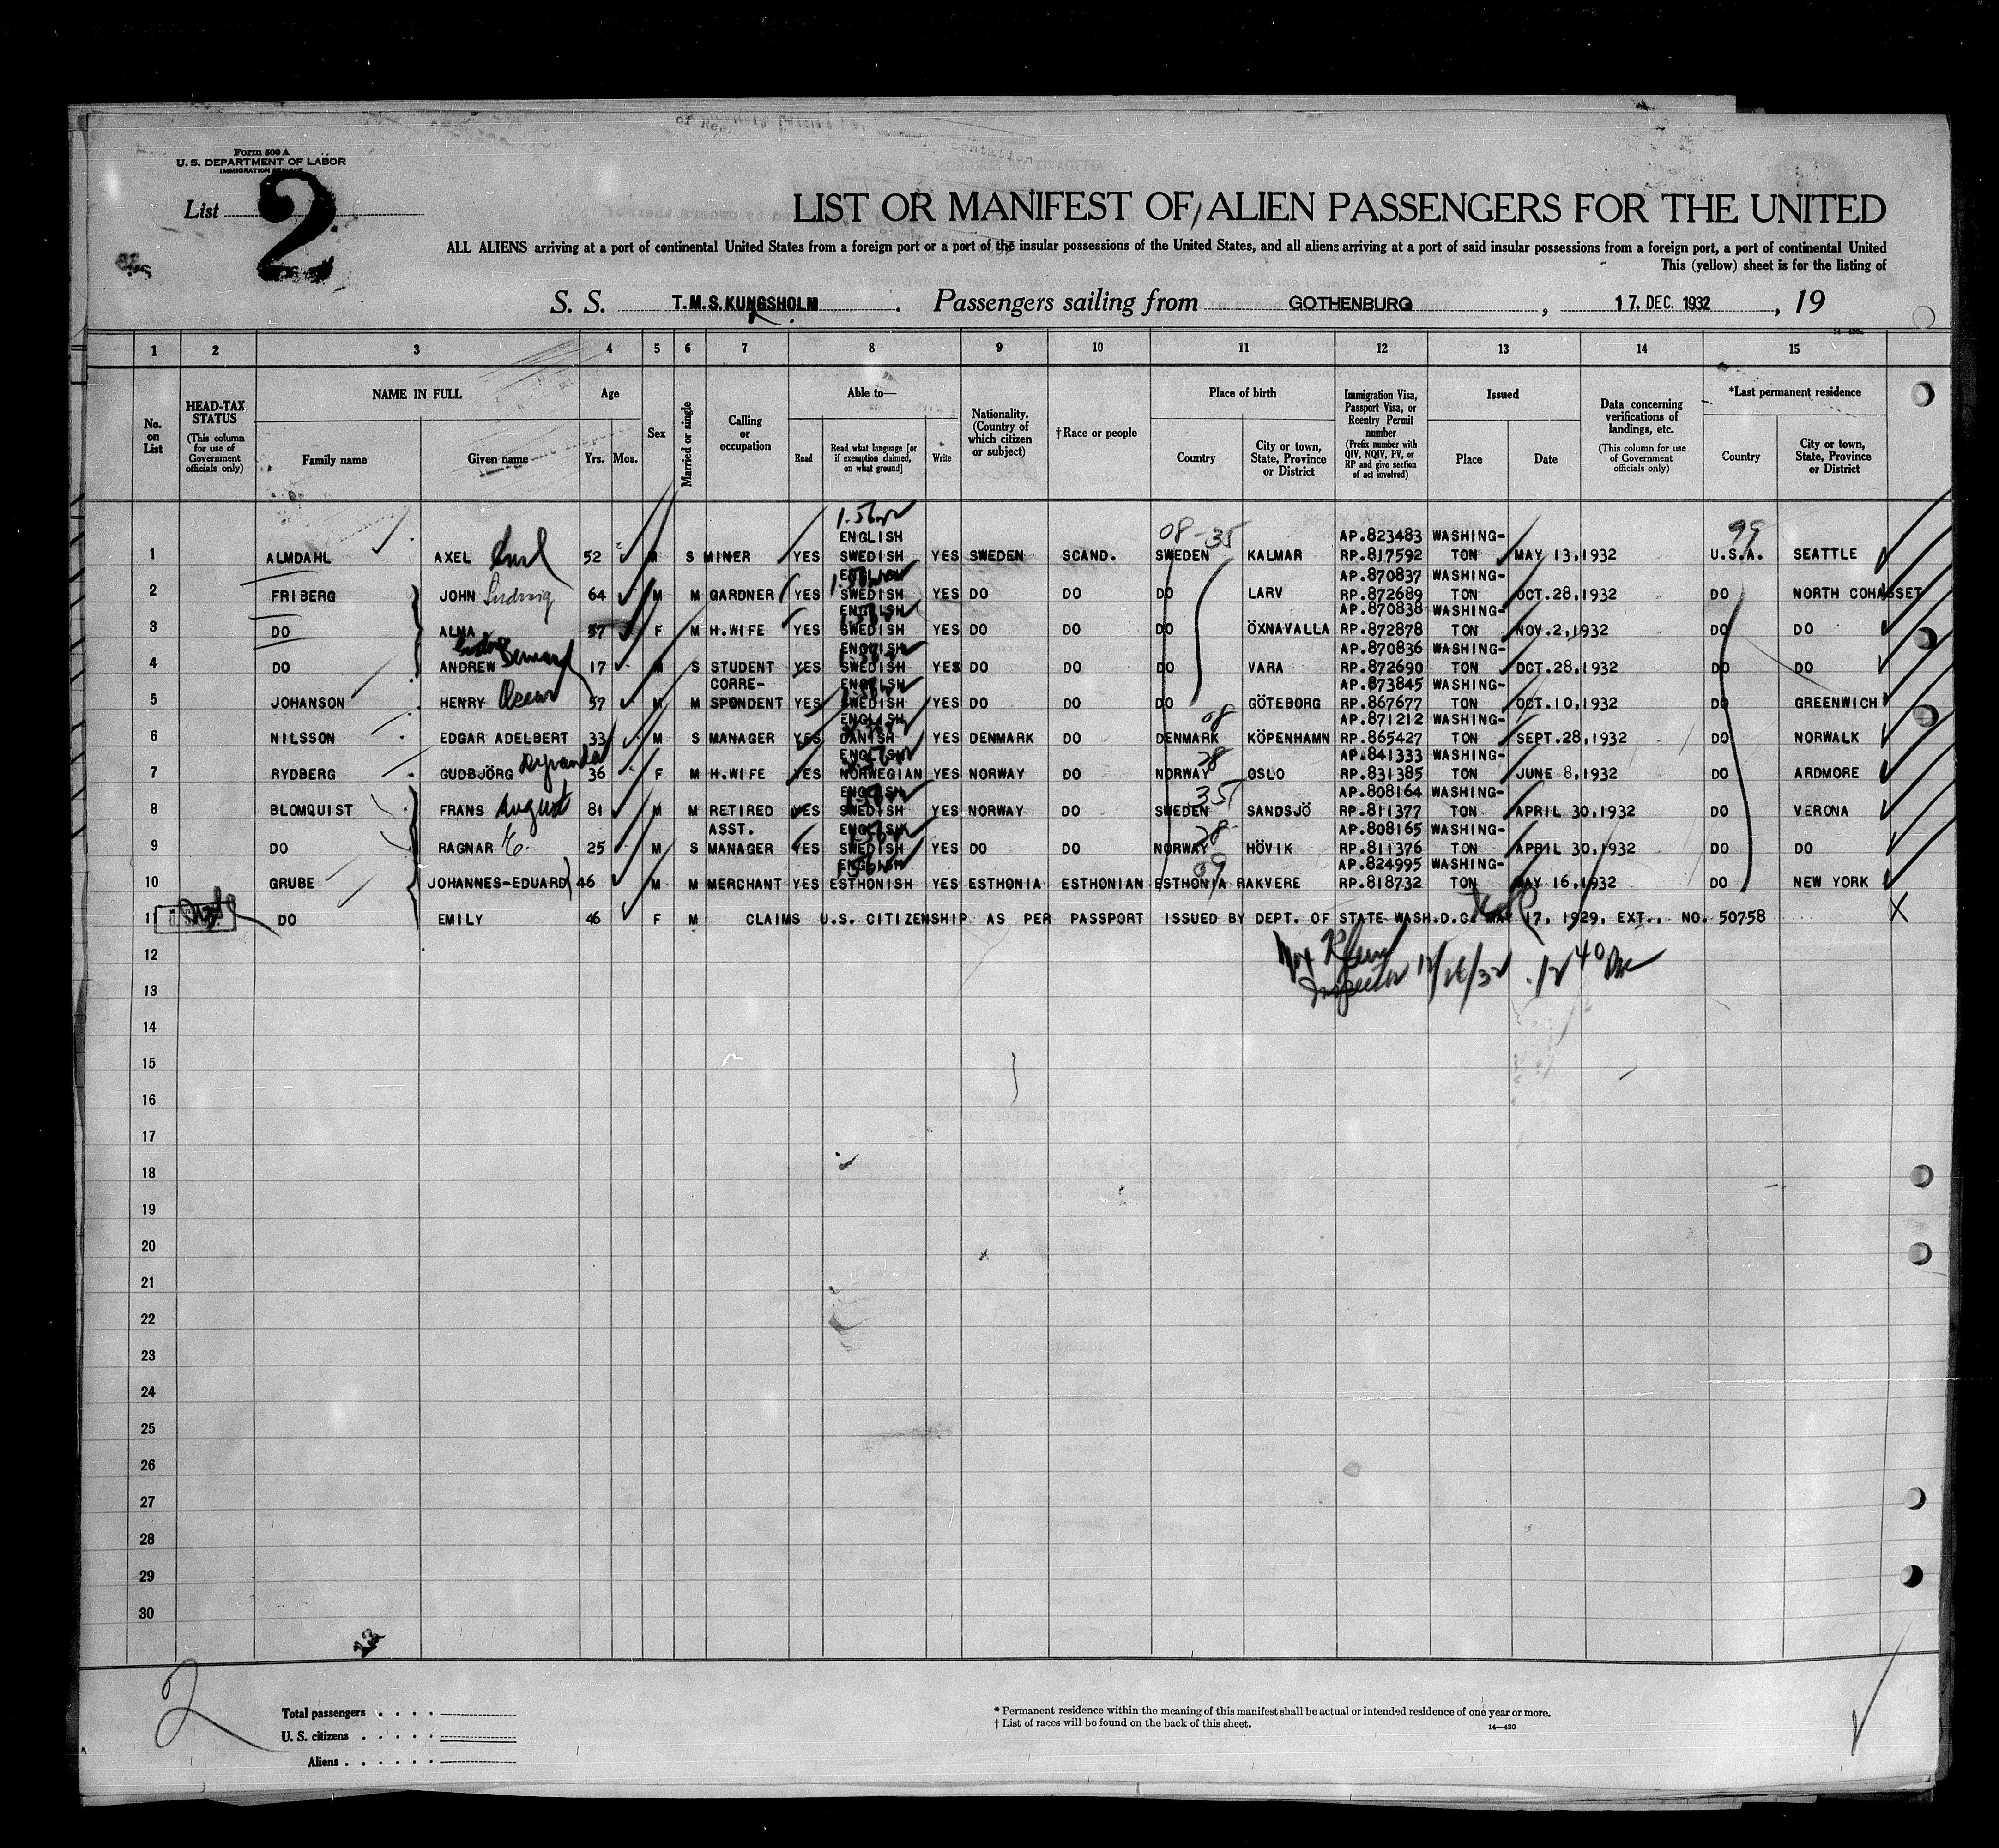 Form 500 A
U. S. DEPARTMENT OF LABOR
IMMIGRATION SERVICE
List 2
LIST OR MANIFEST OF ALIEN PASSENGERS FOR THE UNITED
ALL ALIENS arriving at a port of continental United States from a foreign port or a port of the insular possessions of the United States, and all aliens arriving at a port of said insular possessions from a foreign port, a port of continental United
This (yellow) sheet is for the listing of
S. S. T.M.S.KUNGSHOLM. Passengers sailing from GOTHENBURG, 17. DEC. 1932, 19
14-430a
1 2 3 4 5 6 7 8 9 10 11 12 13 14 15
No. on List
HEAD-TAX STATUS (This column for use of Government officials only)
NAME IN FULL
Family name Given name
Age
Yrs. Mos.
Sex
Married or single
Calling or occupation
Able to—
Read Read what language [or if exemption claimed, on what ground] Write
Nationality. (Country of which citizen or subject)
†Race or people
Place of birth
Country City or town, State, Province or District
Immigration Visa, Passport Visa, or Reentry Permit number (Prefix number with QIV, NQIV, PV, or RP and give section of act involved)
Issued
Place Date
Data concerning verifications of landings, etc. (This column for use of Government officials only)
*Last permanent residence
Country City or town, State, Province or District
08-35 99
ENGLISH AP.823483 WASHING-
1 ALMDAHL AXEL 52 M S MINER YES SWEDISH YES SWEDEN SCAND. SWEDEN KALMAR RP.817592 TON MAY 13,1932 U.S.A. SEATTLE
ENGLISH AP.870837 WASHING-
2 FRIBERG JOHN Ludwig 64 M M GARDNER YES SWEDISH YES DO DO DO LARV RP.872689 TON OCT.28,1932 DO NORTH COHASSET
ENGLISH AP.870838 WASHING-
3 DO ALMA 57 F M H.WIFE YES SWEDISH YES DO DO DO ÖXNAVALLA RP.872878 TON NOV.2,1932 DO DO
ENGLISH AP.870836 WASHING-
4 DO ANDREW 17 M S STUDENT YES SWEDISH YES DO DO DO VARA RP.872690 TON OCT.28,1932 DO DO
CORRE- ENGLISH AP.873845 WASHING-
5 JOHANSON HENRY Oscar 57 M M SPONDENT YES SWEDISH YES DO DO DO GÖTEBORG RP.867677 TON OCT.10,1932 DO GREENWICH
ENGLISH 08 AP.871212 WASHING-
6 NILSSON EDGAR ADELBERT 33 M S MANAGER YES DANISH YES DENMARK DO DENMARK KÖPENHAMN RP.865427 TON SEPT.28,1932 DO NORWALK
ENGLISH 28 AP.841333 WASHING-
7 RYDBERG GUDBJÖRG 36 F M H.WIFE YES NORWEGIAN YES NORWAY DO NORWAY OSLO RP.831385 TON JUNE 8,1932 DO ARDMORE
ENGLISH 35 AP.808164 WASHING-
8 BLOMQUIST FRANS August 81 M M RETIRED YES SWEDISH YES NORWAY DO SWEDEN SANDSJÖ RP.811377 TON APRIL 30,1932 DO VERONA
ASST. ENGLISH 28 AP.808165 WASHING-
9 DO RAGNAR E. 25 M S MANAGER YES SWEDISH YES DO DO NORWAY HÖVIK RP.811376 TON APRIL 30,1932 DO DO
ENGLISH 09 AP.824995 WASHING-
10 GRUBE JOHANNES-EDUARD 46 M M MERCHANT YES ESTHONISH YES ESTHONIA ESTHONIAN ESTHONIA RAKVERE RP.818732 TON MAY 16,1932 DO NEW YORK
11 DO EMILY 46 F M CLAIMS U.S. CITIZENSHIP AS PER PASSPORT ISSUED BY DEPT. OF STATE WASH.D.C. MAY 17, 1929, EXT., NO. 50758 X
12
Inspector
13
14
15
16
17
18
19
20
21
22
23
24
25
26
27
28
29
30
2
Total passengers
U. S. citizens
Aliens
* Permanent residence within the meaning of this manifest shall be actual or intended residence of one year or more.
† List of races will be found on the back of this sheet.
14—430